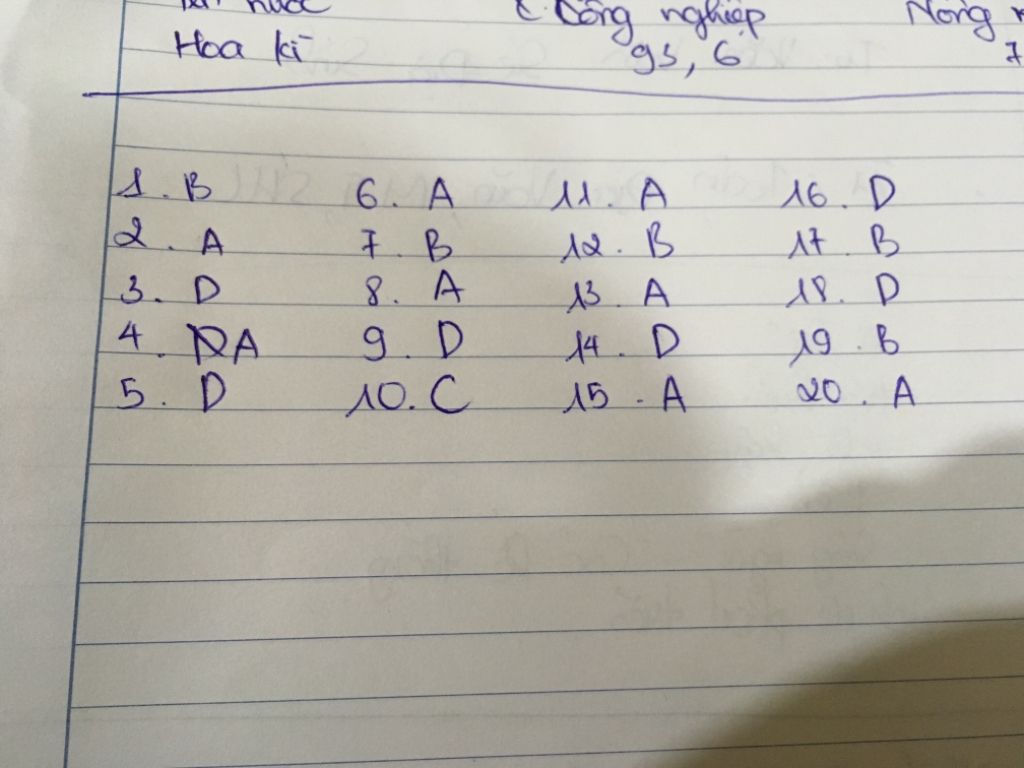 nước Công nghiệp Nông
Hoa kì 95, 6 7
1. B 6. A 11. A 16. D
2. A 7. B 12. B 17. B
3. D 8. A 13. A 18. D
4. A 9. D 14. D 19. B
5. D 10. C 15. A 20. A